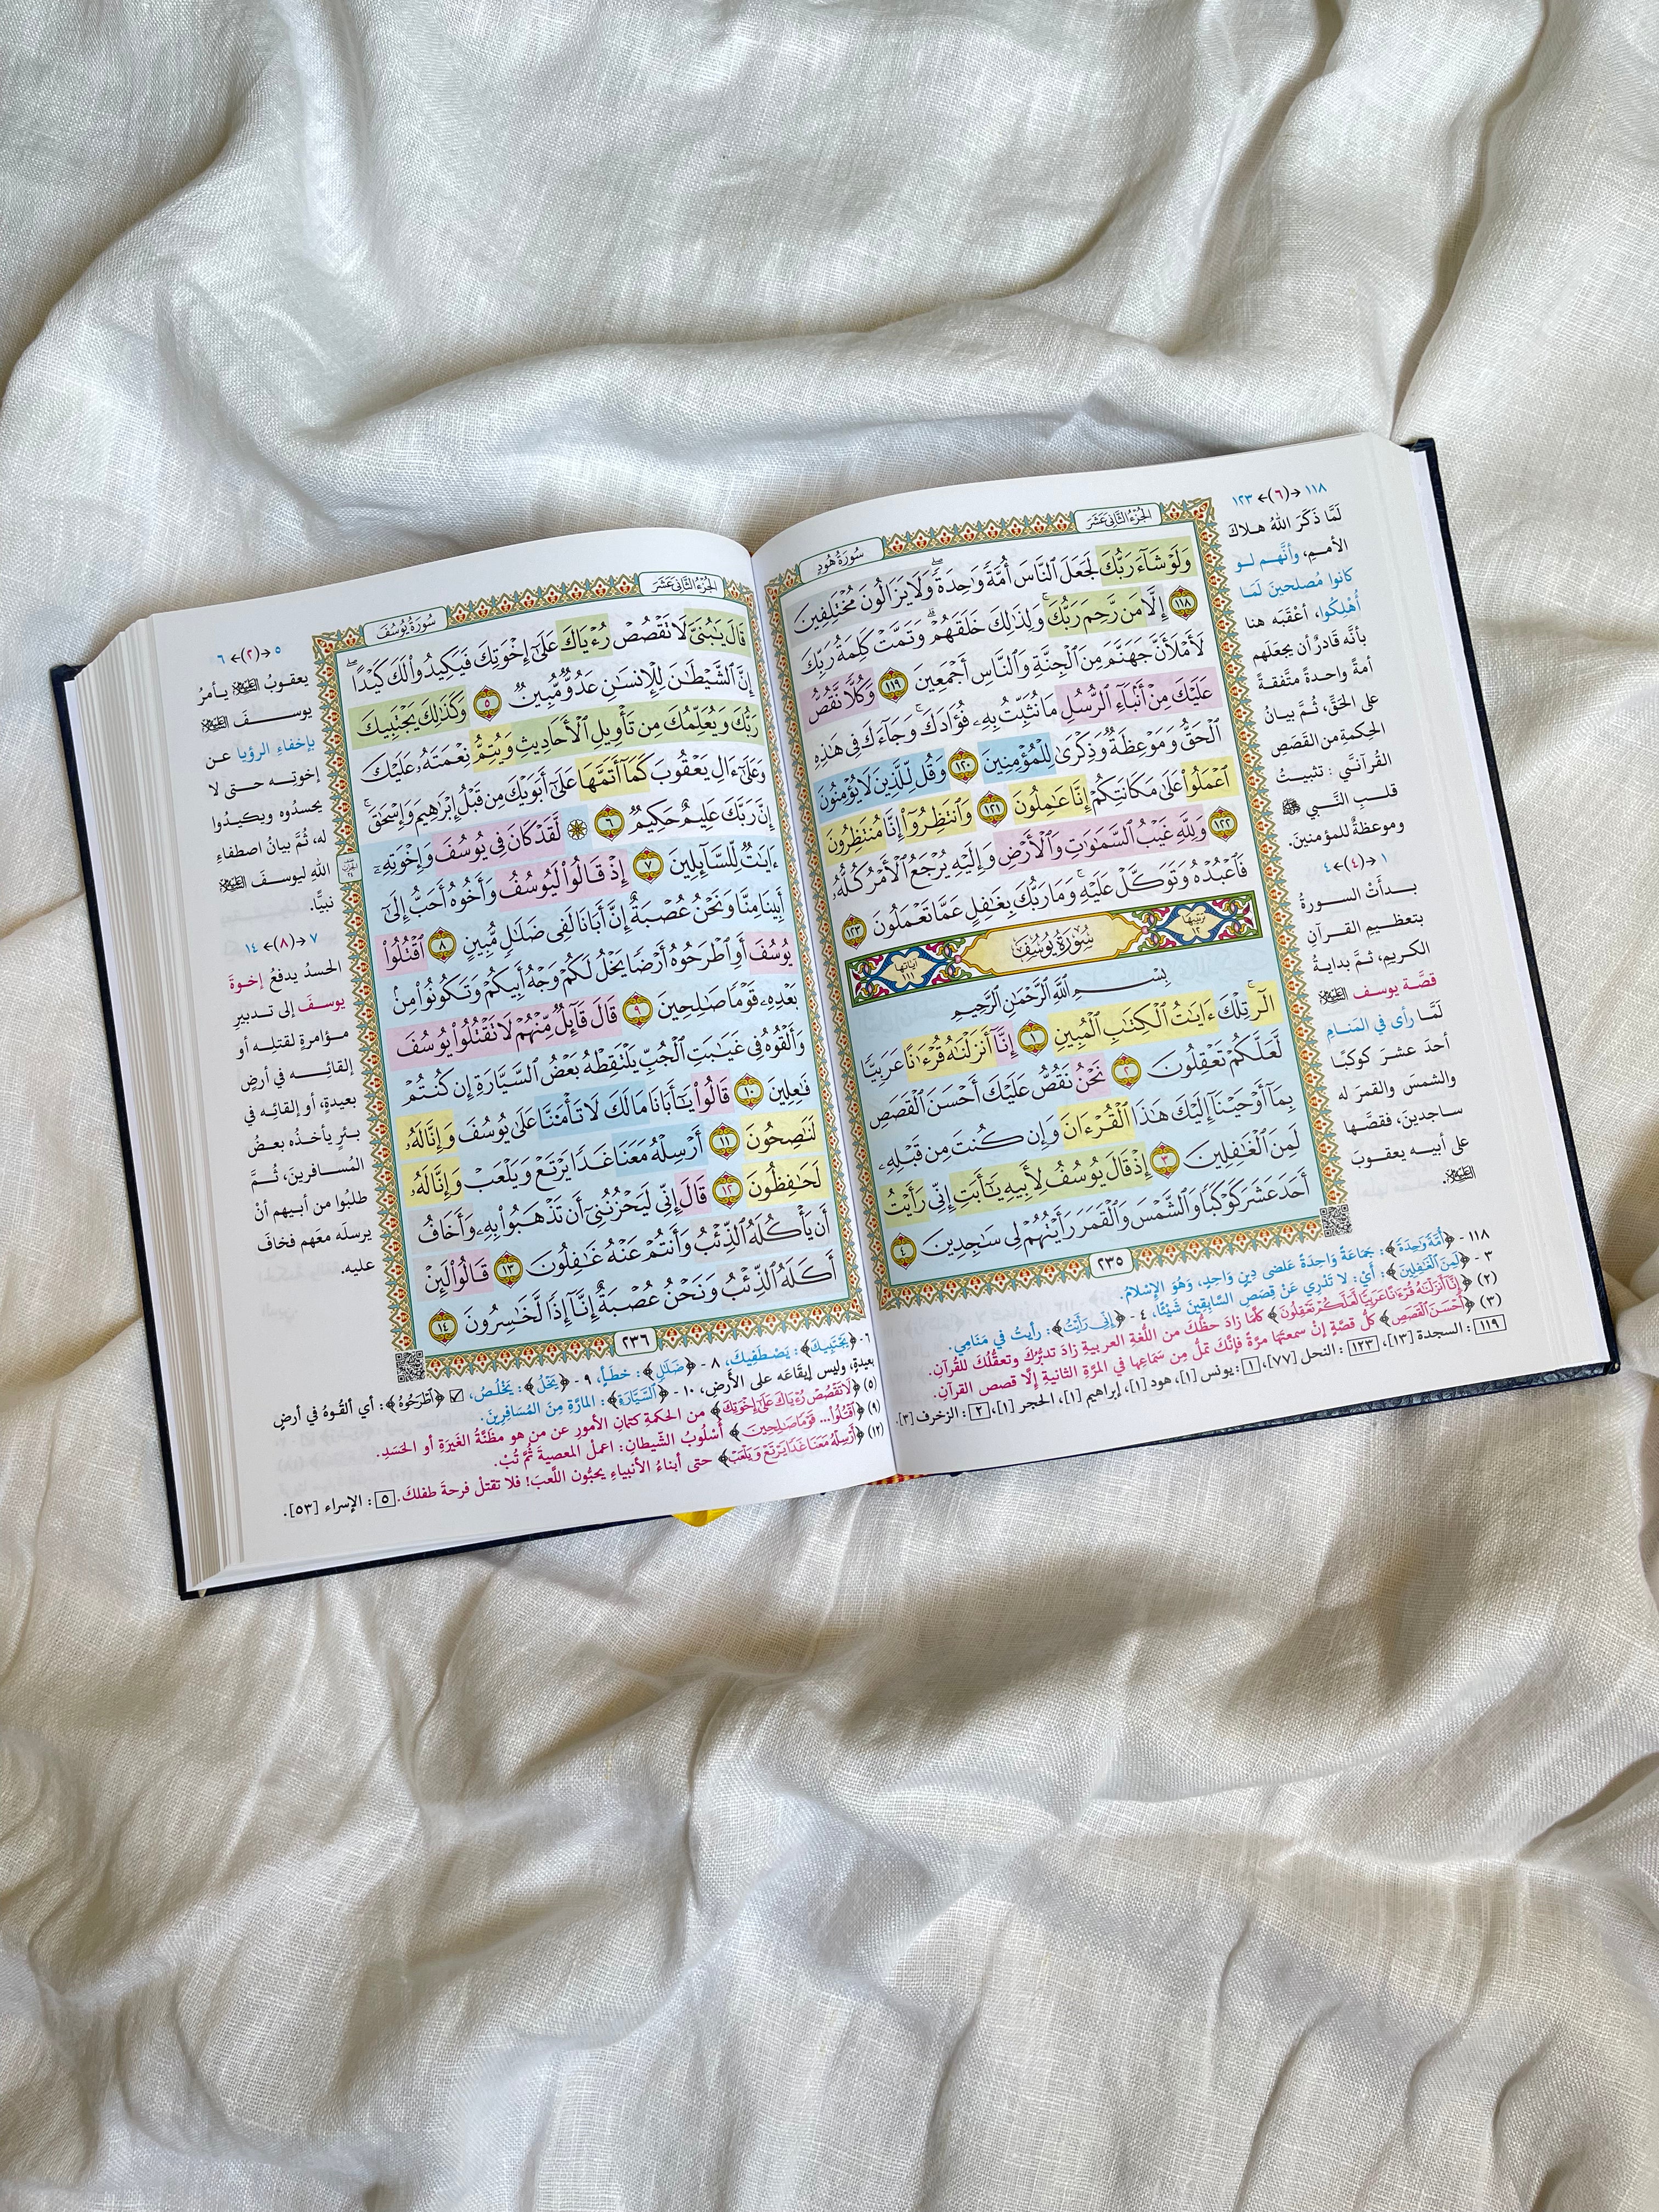 الجُزْءُ الثَّانِي عَشَرَ
سُورَةُ هُودٍ
وَلَوْ شَآءَ رَبُّكَ لَجَعَلَ ٱلنَّاسَ أُمَّةً وَٰحِدَةً ۖ وَلَا يَزَالُونَ مُخْتَلِفِينَ
١١٨ إِلَّا مَن رَّحِمَ رَبُّكَ ۚ وَلِذَٰلِكَ خَلَقَهُمْ ۗ وَتَمَّتْ كَلِمَةُ رَبِّكَ
لَأَمْلَأَنَّ جَهَنَّمَ مِنَ ٱلْجِنَّةِ وَٱلنَّاسِ أَجْمَعِينَ ١١٩ وَكُلًّا نَّقُصُّ
عَلَيْكَ مِنْ أَنۢبَآءِ ٱلرُّسُلِ مَا نُثَبِّتُ بِهِۦ فُؤَادَكَ ۚ وَجَآءَكَ فِى هَٰذِهِ
ٱلْحَقُّ وَمَوْعِظَةٌ وَذِكْرَىٰ لِلْمُؤْمِنِينَ ١٢٠ وَقُل لِّلَّذِينَ لَا يُؤْمِنُونَ
ٱعْمَلُوا۟ عَلَىٰ مَكَانَتِكُمْ إِنَّا عَٰمِلُونَ ١٢١ وَٱنتَظِرُوٓا۟ إِنَّا مُنتَظِرُونَ
١٢٢ وَلِلَّهِ غَيْبُ ٱلسَّمَٰوَٰتِ وَٱلْأَرْضِ وَإِلَيْهِ يُرْجَعُ ٱلْأَمْرُ كُلُّهُۥ
فَٱعْبُدْهُ وَتَوَكَّلْ عَلَيْهِ ۚ وَمَا رَبُّكَ بِغَٰفِلٍ عَمَّا تَعْمَلُونَ ١٢٣
ترتيبها ١٢ سُورَةُ يُوسُفَ آياتها ١١١
بِسْمِ ٱللَّهِ ٱلرَّحْمَٰنِ ٱلرَّحِيمِ
الٓر ۚ تِلْكَ ءَايَٰتُ ٱلْكِتَٰبِ ٱلْمُبِينِ ١ إِنَّآ أَنزَلْنَٰهُ قُرْءَٰنًا عَرَبِيًّا
لَّعَلَّكُمْ تَعْقِلُونَ ٢ نَحْنُ نَقُصُّ عَلَيْكَ أَحْسَنَ ٱلْقَصَصِ
بِمَآ أَوْحَيْنَآ إِلَيْكَ هَٰذَا ٱلْقُرْءَانَ وَإِن كُنتَ مِن قَبْلِهِۦ
لَمِنَ ٱلْغَٰفِلِينَ ٣ إِذْ قَالَ يُوسُفُ لِأَبِيهِ يَٰٓأَبَتِ إِنِّى رَأَيْتُ
أَحَدَ عَشَرَ كَوْكَبًا وَٱلشَّمْسَ وَٱلْقَمَرَ رَأَيْتُهُمْ لِى سَٰجِدِينَ ٤
٢٣٥
١١٨ →(٦)← ١٢٣
لَمَّا ذَكَرَ اللهُ هلاكَ
الأممِ، وأنَّهم لو
كانوا مُصلحينَ لَمَا
أُهْلِكُوا، أعْقَبَه هنا
بأنَّه قَادرٌ أن يجعلَهم
أمةً واحدةً متَّفقةً
على الحَقِّ، ثُمَّ بيانُ
الحكمةِ من القَصَصِ
القُرآنيِّ : تثبيتُ
قلبِ النَّبي ﷺ
وموعظةٌ للمؤمنينَ.
١ →(٤)← ٤
بدأتْ السورةُ
بتعظيمِ القرآنِ
الكريمِ، ثمَّ بدايةُ
قصَّة يوسف عليه السلام
لَمَّا رأى في المَنامِ
أحدَ عشرَ كوكبًا
والشمسَ والقمرَ له
ساجدينَ، فقصَّها
على أبيه يعقوبَ
عليه السلام.
١١٨ - ﴿أُمَّةً وَٰحِدَةً﴾: جَمَاعَةً وَاحِدَةً عَلَى دِينٍ وَاحِدٍ، وَهُوَ الإِسْلَامُ.
٣ - ﴿لَمِنَ ٱلْغَٰفِلِينَ﴾: أَيْ: لَا تَدْرِي عَنْ قِصَصِ السَّابِقِينَ شَيْئًا، ٤ - ﴿إِنِّى رَأَيْتُ﴾: رأيتُ في مَنَامِي.
(٢) ﴿إِنَّآ أَنزَلْنَٰهُ قُرْءَٰنًا عَرَبِيًّا لَّعَلَّكُمْ تَعْقِلُونَ﴾ كلَّما زادَ حظُّكَ من اللُّغةِ العربيةِ زادَ تدبُّرُكَ وتعقُّلُكَ للقُرآنِ.
(٣) ﴿أَحْسَنَ ٱلْقَصَصِ﴾ كلُّ قصَّةٍ إنْ سمعتَها مرَّةً فإنَّكَ تملُّ مِن سَمَاعِها في المرَّةِ الثانيةِ إلَّا قصص القرآنِ.
١١٩: السجدة [١٣]، ١٢٣: النحل [٧٧]، ١: يونس [١]، هود [١]، إبراهيم [١]، الحجر [١]، ٢: الزخرف [٣].
الجُزْءُ الثَّانِي عَشَرَ
سُورَةُ يُوسُفَ
قَالَ يَٰبُنَىَّ لَا تَقْصُصْ رُءْيَاكَ عَلَىٰٓ إِخْوَتِكَ فَيَكِيدُوا۟ لَكَ كَيْدًا ۖ
إِنَّ ٱلشَّيْطَٰنَ لِلْإِنسَٰنِ عَدُوٌّ مُّبِينٌ ٥ وَكَذَٰلِكَ يَجْتَبِيكَ
رَبُّكَ وَيُعَلِّمُكَ مِن تَأْوِيلِ ٱلْأَحَادِيثِ وَيُتِمُّ نِعْمَتَهُۥ عَلَيْكَ
وَعَلَىٰٓ ءَالِ يَعْقُوبَ كَمَآ أَتَمَّهَا عَلَىٰٓ أَبَوَيْكَ مِن قَبْلُ إِبْرَٰهِيمَ وَإِسْحَٰقَ ۚ
إِنَّ رَبَّكَ عَلِيمٌ حَكِيمٌ ٦ ۞ لَّقَدْ كَانَ فِى يُوسُفَ وَإِخْوَتِهِۦٓ
ءَايَٰتٌ لِّلسَّآئِلِينَ ٧ إِذْ قَالُوا۟ لَيُوسُفُ وَأَخُوهُ أَحَبُّ إِلَىٰٓ
أَبِينَا مِنَّا وَنَحْنُ عُصْبَةٌ إِنَّ أَبَانَا لَفِى ضَلَٰلٍ مُّبِينٍ ٨ ٱقْتُلُوا۟
يُوسُفَ أَوِ ٱطْرَحُوهُ أَرْضًا يَخْلُ لَكُمْ وَجْهُ أَبِيكُمْ وَتَكُونُوا۟ مِنۢ
بَعْدِهِۦ قَوْمًا صَٰلِحِينَ ٩ قَالَ قَآئِلٌ مِّنْهُمْ لَا تَقْتُلُوا۟ يُوسُفَ
وَأَلْقُوهُ فِى غَيَٰبَتِ ٱلْجُبِّ يَلْتَقِطْهُ بَعْضُ ٱلسَّيَّارَةِ إِن كُنتُمْ
فَٰعِلِينَ ١٠ قَالُوا۟ يَٰٓأَبَانَا مَا لَكَ لَا تَأْمَ۫نَّا عَلَىٰ يُوسُفَ وَإِنَّا لَهُۥ
لَنَٰصِحُونَ ١١ أَرْسِلْهُ مَعَنَا غَدًا يَرْتَعْ وَيَلْعَبْ وَإِنَّا لَهُۥ
لَحَٰفِظُونَ ١٢ قَالَ إِنِّى لَيَحْزُنُنِىٓ أَن تَذْهَبُوا۟ بِهِۦ وَأَخَافُ
أَن يَأْكُلَهُ ٱلذِّئْبُ وَأَنتُمْ عَنْهُ غَٰفِلُونَ ١٣ قَالُوا۟ لَئِنْ
أَكَلَهُ ٱلذِّئْبُ وَنَحْنُ عُصْبَةٌ إِنَّآ إِذًا لَّخَٰسِرُونَ ١٤
٢٣٦
٥ →(٢)← ٦
يعقوبُ عليه السلام يأمرُ
يوسفَ عليه السلام
بإخفاءِ الرؤيا عن
إخوتِه حتى لا
يحسدُوه ويكيدُوا
له، ثُمَّ بيانُ اصطفاءِ
اللهِ ليوسفَ عليه السلام
نبيًّا.
٧ →(٨)← ١٤
الحسدُ يدفعُ إخوةَ
يوسفَ إلى تدبيرِ
مؤامرةٍ لقتلِه أو
إلقائِه في أرضٍ
بعيدةٍ، أو إلقائِه في
بئرٍ يأخذُه بعضُ
المُسافرينَ، ثُمَّ
طلبُوا من أبيهم أنْ
يرسلَه معَهم فخافَ
عليه.
٦- ﴿يَجْتَبِيكَ﴾: يَصْطَفِيكَ، ٨ - ﴿ضَلَٰلٍ﴾: خطَأٍ، ٩ - ﴿يَخْلُ﴾: يَخْلُصْ، ☑ ﴿ٱطْرَحُوهُ﴾: أي ألقُوهُ في أرضٍ
بعيدةٍ، وليس إيقَاعَه على الأرضِ، ١٠ - ﴿ٱلسَّيَّارَةِ﴾: المارَّةِ مِنَ المُسَافِرِينَ.
(٥) ﴿لَا تَقْصُصْ رُءْيَاكَ عَلَىٰٓ إِخْوَتِكَ﴾ من الحكمةِ كتمانِ الأمورِ عن من هو مظنَّةُ الغَيرَةِ أو الحَسَدِ.
(٩) ﴿ٱقْتُلُوا۟... قَوْمًا صَٰلِحِينَ﴾ أُسْلُوبُ الشَّيطانِ: اعملْ المعصيةَ ثُمَّ تُبْ.
(١٢) ﴿أَرْسِلْهُ مَعَنَا غَدًا يَرْتَعْ وَيَلْعَبْ﴾ حتى أبناءُ الأنبياءِ يحبُّون اللَّعبَ! فلا تقتلْ فرحةَ طفلكَ. ٥: الإسراء [٥٣].